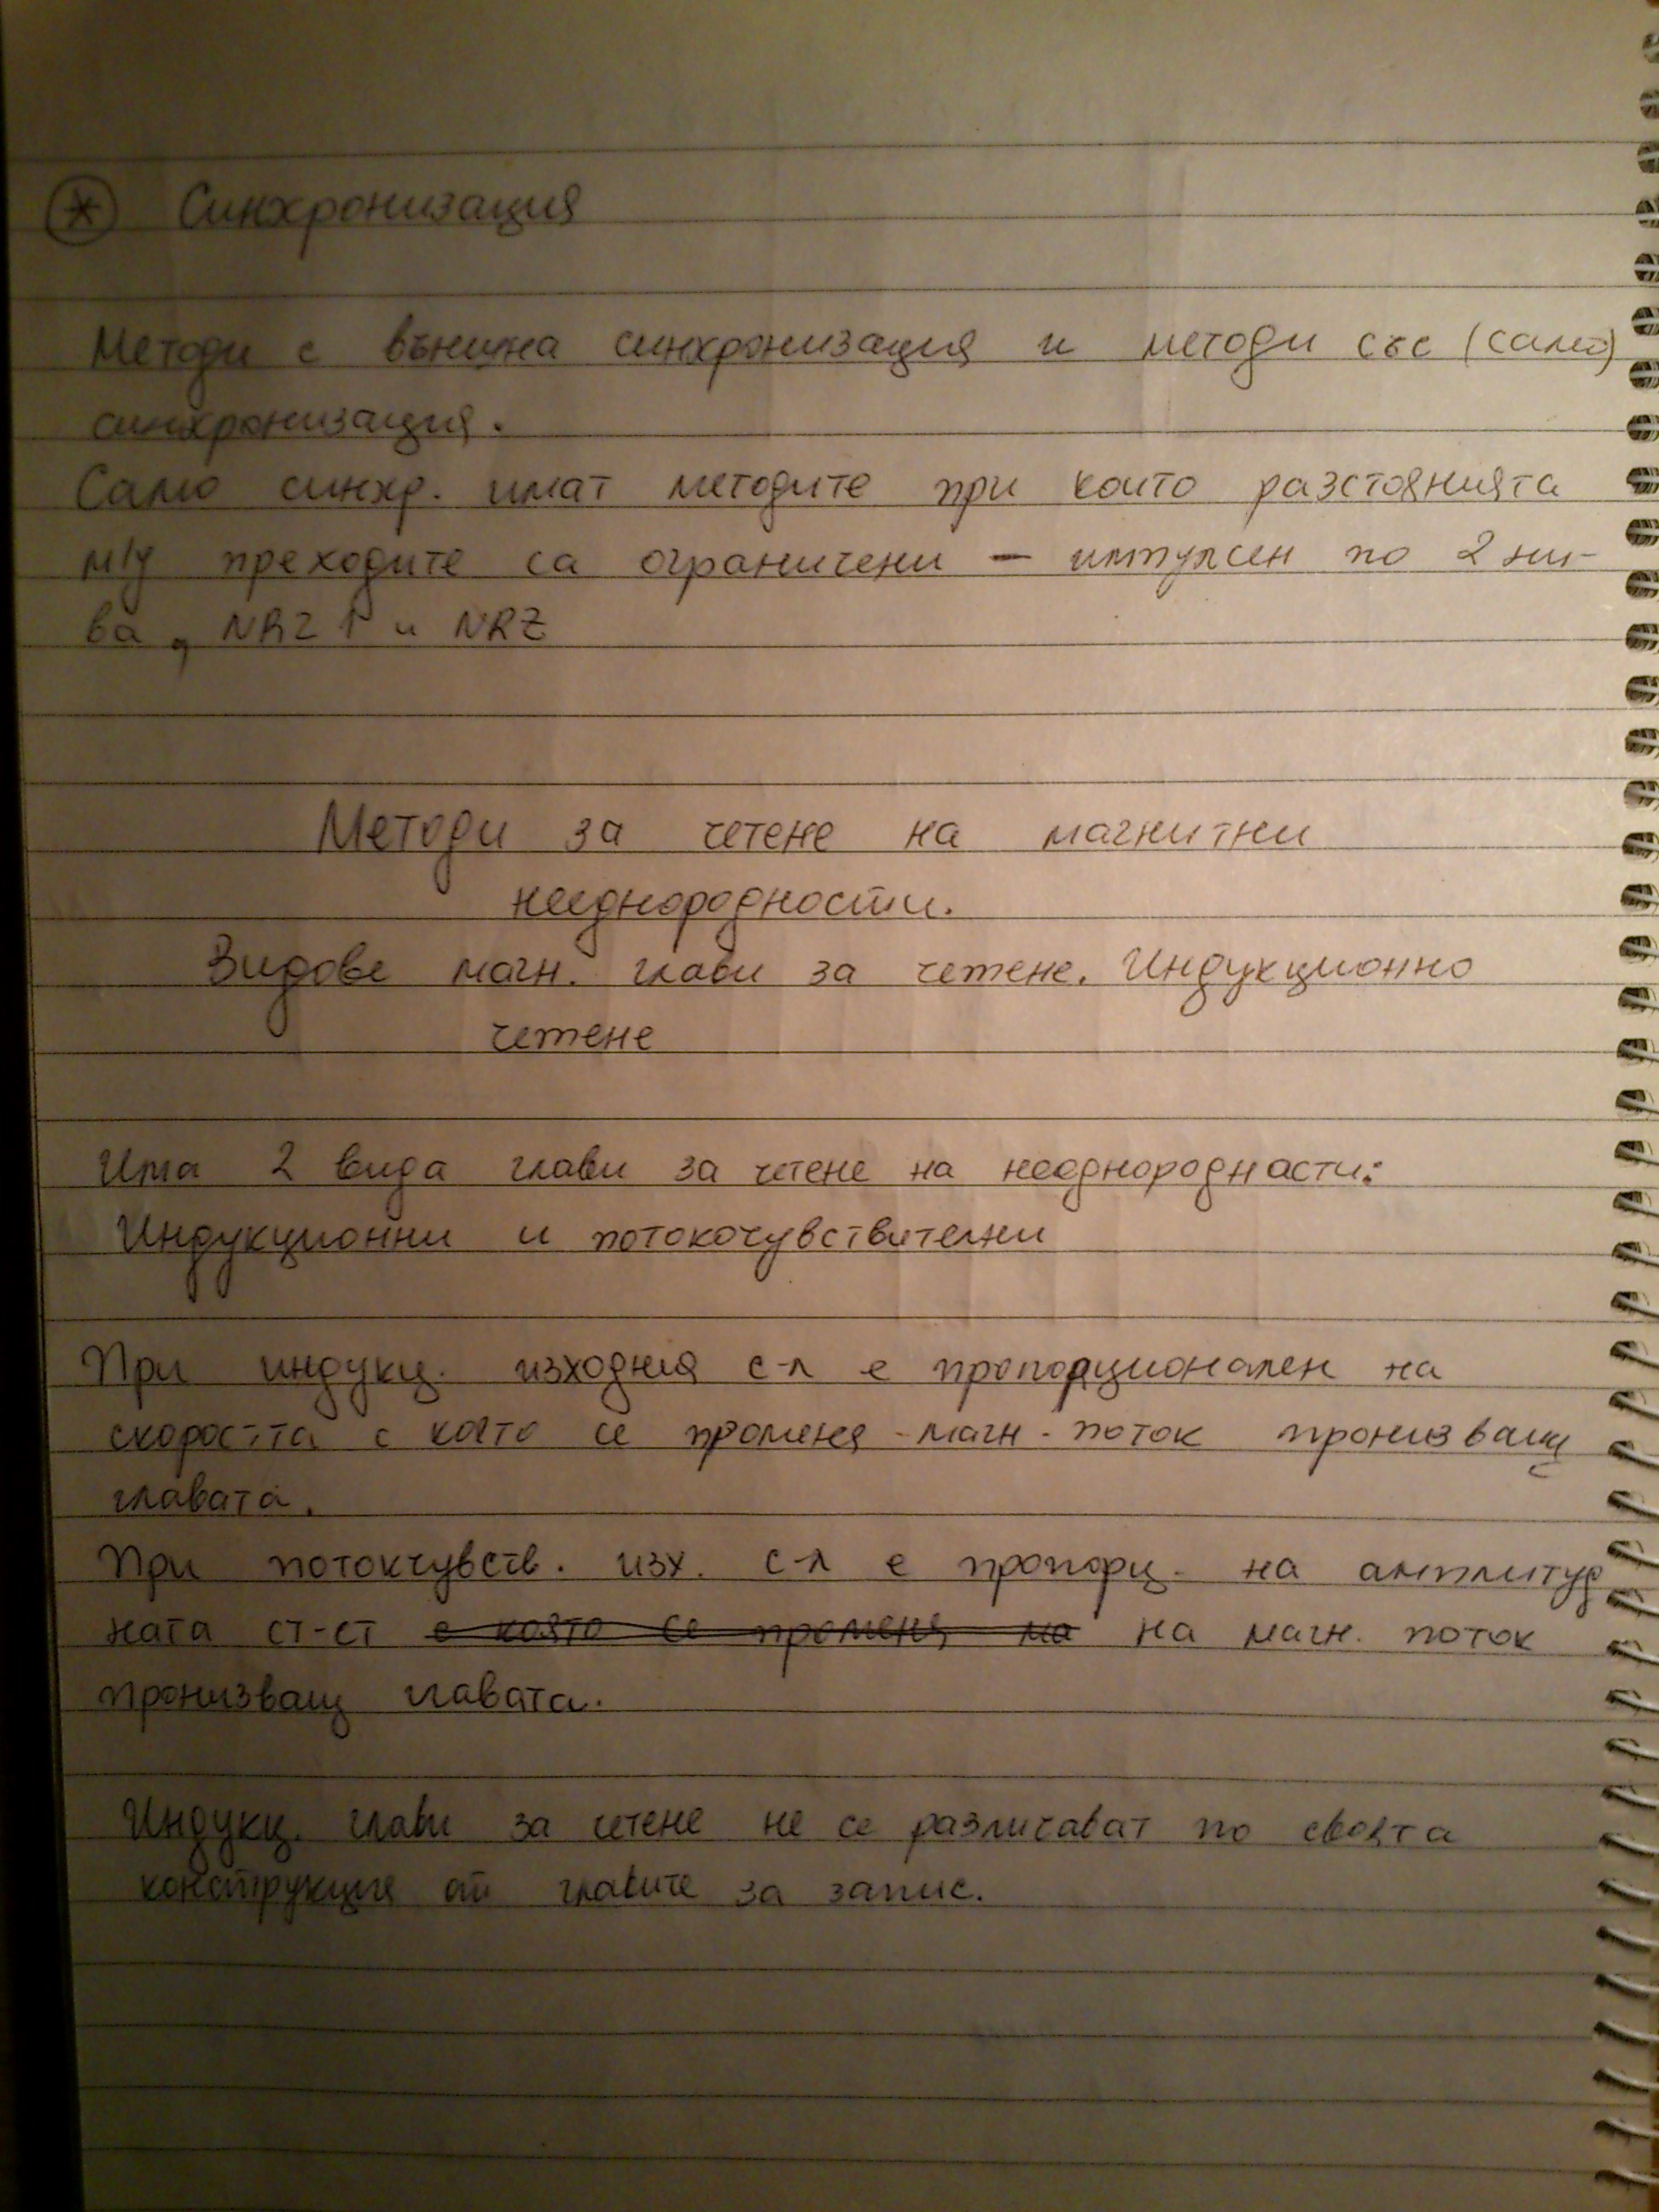 * Синхронизация
Методи с външна синхронизация и методи със (само)
синхронизация.
Само синхр. имат методите при които разстоянията
м/у преходите са ограничени – импулсен по 2 ни-
ва, NRZ 1 и NRZ
Методи за четене на магнитни
нееднородности.
Видове магн. глави за четене. Индукционно
четене
Има 2 вида глави за четене на нееднородности:
Индукционни и потокочувствителни
При индукц. изходния с-л е пропорционален на
скоростта с която се променя магн. поток пронизващ
главата.
При потокчувств. изх. с-л е пропорц. на амплитуд
ната ст-ст с която се променя ма на магн. поток
пронизващ главата.
Индукц. глави за четене не се различават по своята
конструкция от главите за запис.